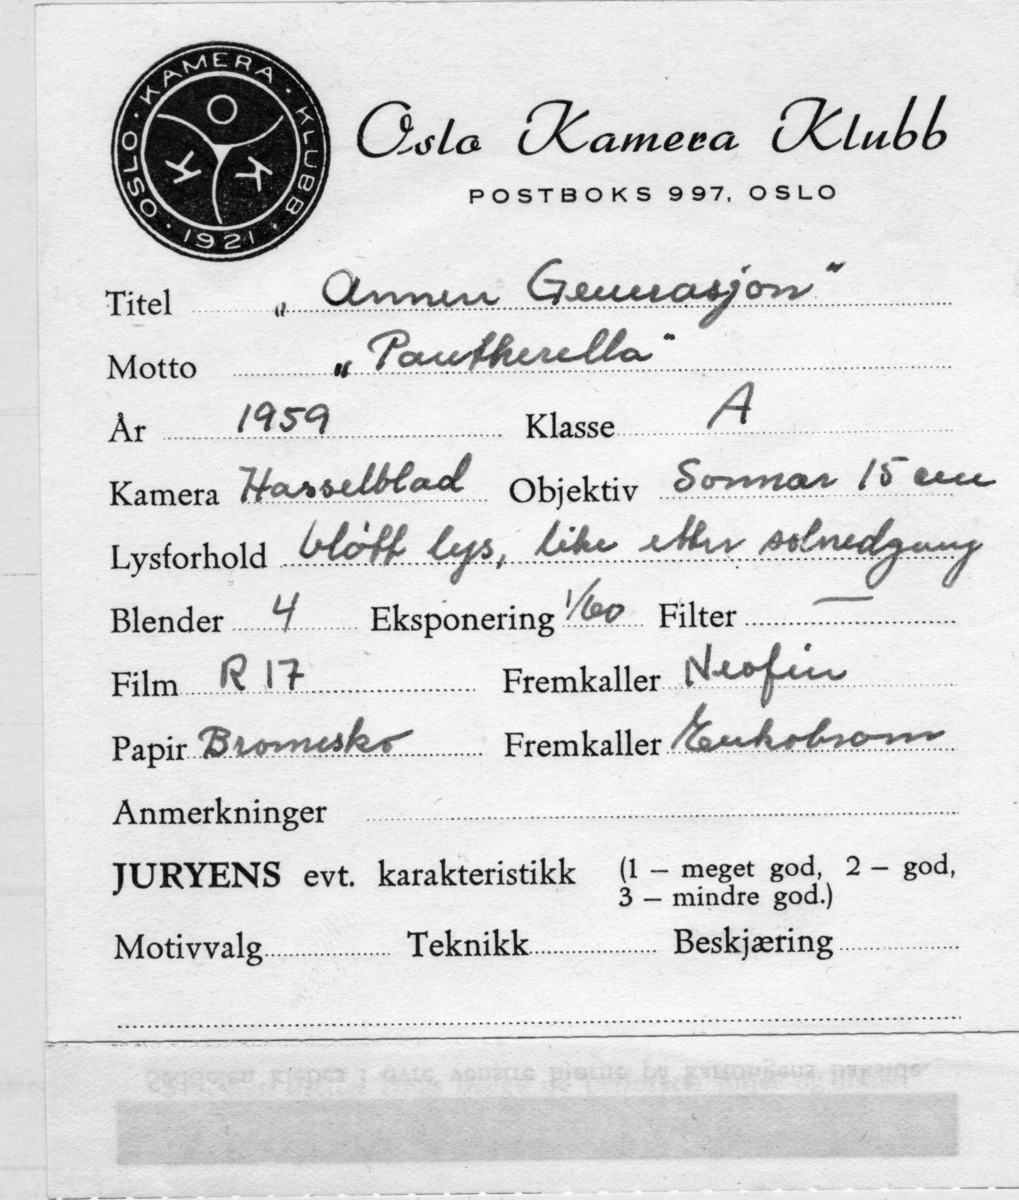 OSLO · KAMERA · KLUBB · 1921 ·
K K
Oslo Kamera Klubb
POSTBOKS 997, OSLO
Titel „Annen Generasjon"
Motto „Pantherella"
År 1959 Klasse A
Kamera Hasselblad Objektiv Sonnar 15 cm
Lysforhold bløtt lys, like etter solnedgang
Blender 4 Eksponering 1/60 Filter —
Film R 17 Fremkaller Neofin
Papir Bromesko Fremkaller Eukobrom
Anmerkninger
JURYENS evt. karakteristikk (1 – meget god, 2 – god,
3 – mindre god.)
Motivvalg Teknikk Beskjæring
Seddelen klebes i øvre venstre hjørne på kartongens bakside.